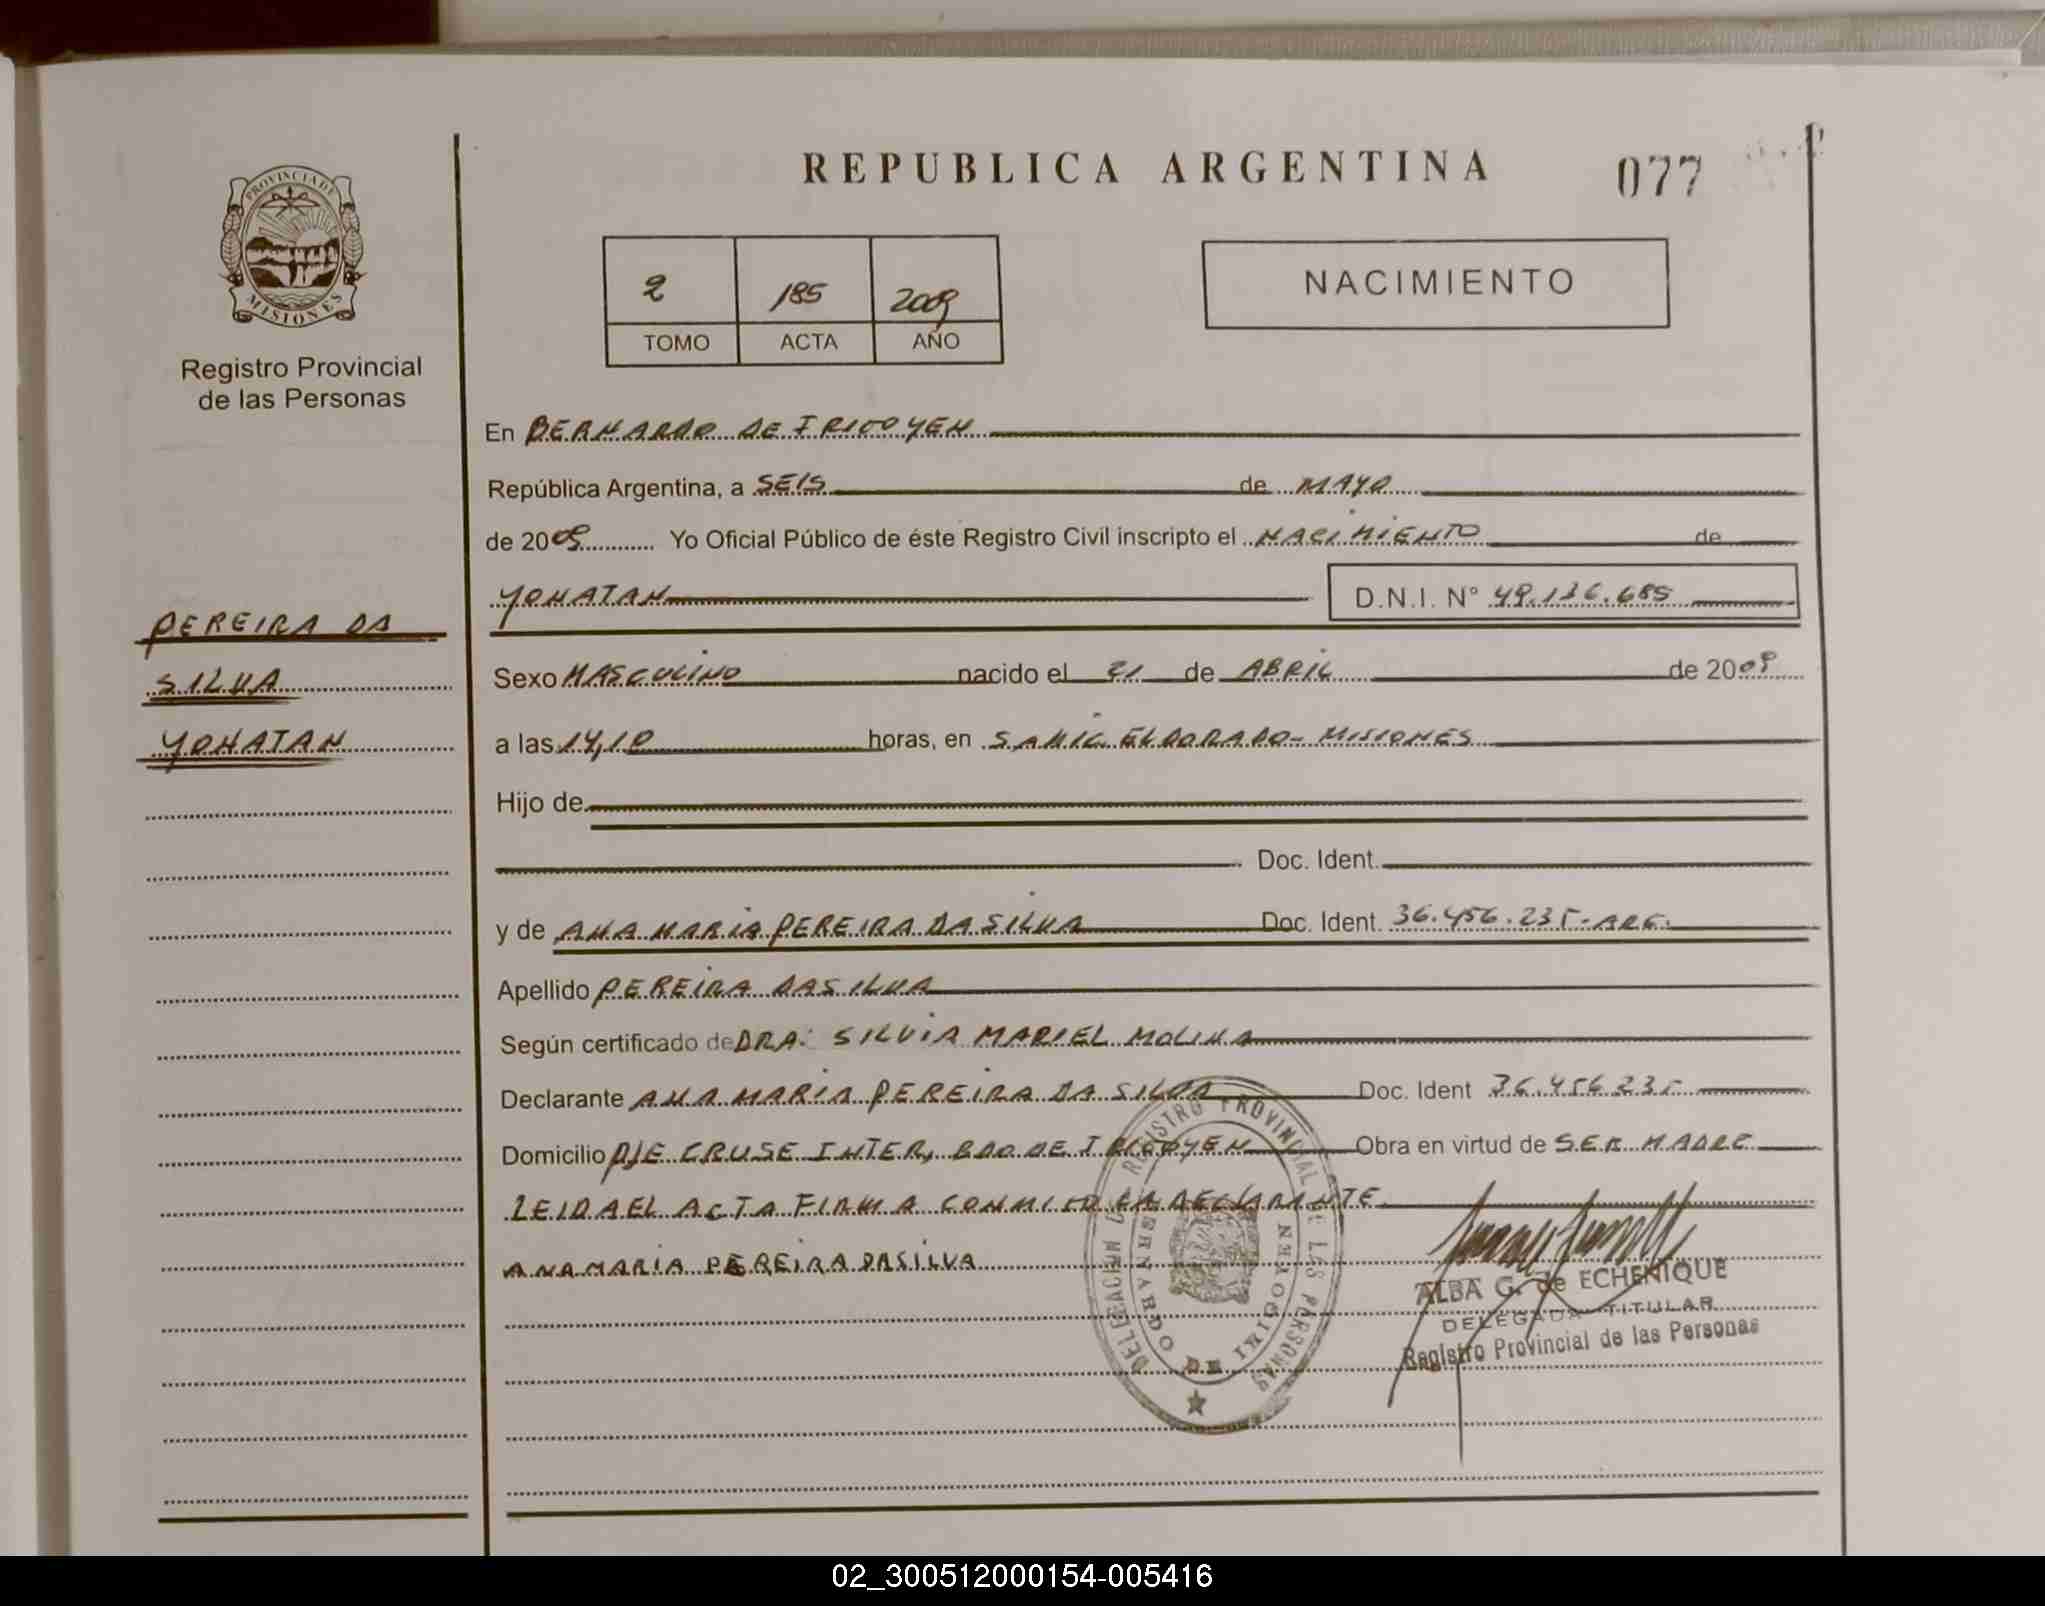 REPUBLICA ARGENTINA
077
PROVINCIA DE
MISIONES
Registro Provincial
de las Personas
2 185 2009
TOMO ACTA AÑO
NACIMIENTO
En BERNARDO DE IRIGOYEN
República Argentina, a SEIS de MAYO
de 2009 Yo Oficial Público de éste Registro Civil inscripto el NACIMIENTO de
YOHATAN D.N.I. N° 49.136.685
PEREIRA DA
SILVA
YOHATAN
Sexo MASCULINO nacido el 21 de ABRIL de 2009
a las 14,10 horas, en SAMIC ELDORADO- MISIONES
Hijo de
Doc. Ident.
y de ANA MARIA PEREIRA DA SILVA Doc. Ident. 36.456.235-ARG.
Apellido PEREIRA DA SILVA
Según certificado de DRA. SILVIA MARIEL MOLINA
Declarante ANA MARIA PEREIRA DA SILVA Doc. Ident 36.456.235
Domicilio CRUSE INTER, BDO DE IRIGOYEN Obra en virtud de SER MADRE
LEIDA EL ACTA FIRMA CONMIGO LA DECLARANTE
ANA MARIA PEREIRA DA SILVA
DELEGACION REGISTRO PROVINCIAL DE LAS PERSONAS
BERNARDO DE IRIGOYEN
ALBA G. de ECHENIQUE
DELEGADA TITULAR
Registro Provincial de las Personas
02_300512000154-005416